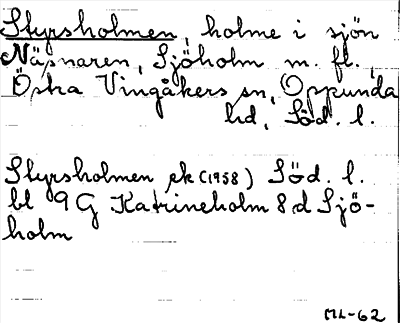 Styrsholmen, holme i sjön
Näsnaren, Sjöholm m. fl.,
Östra Vingåkers sn, Oppunda
hd, Söd. l.
Styrsholmen ek (1958) Söd. l.
bl 9 G Katrineholm 8 d Sjö-
holm
ML-62